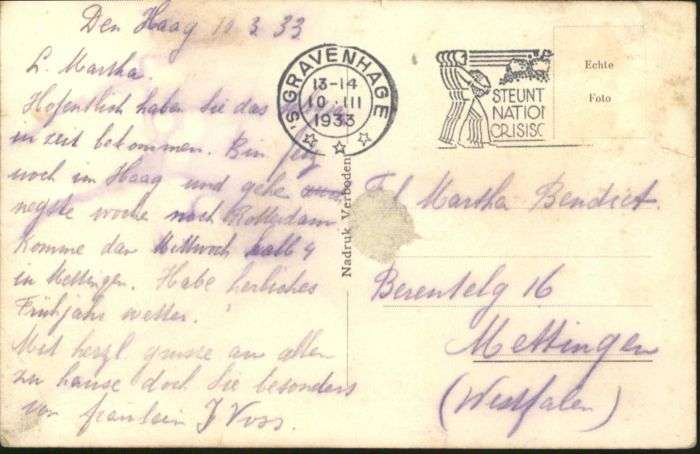 Den Haag 10 3 33
L. Martha.
Hofentlich haben Sie das
in zeit bekommen. Bin
noch im Haag und gehe
negste woche noch Rotterdam
Komme dan Mittwoch halb 4
in Mettingen. Habe herliches
Frühjahr wetter.
Mit herzl. grusse an allen
zu hause doch Sie besonders
von fraulein J Voss.
'S GRAVENHAGE
13-14
10 III
1933
STEUNT
NATION
CRISISC
Echte
Foto
Nadruk Verboden
Martha Bendict.
Berentelg 16
Mettingen
(Westfalen)